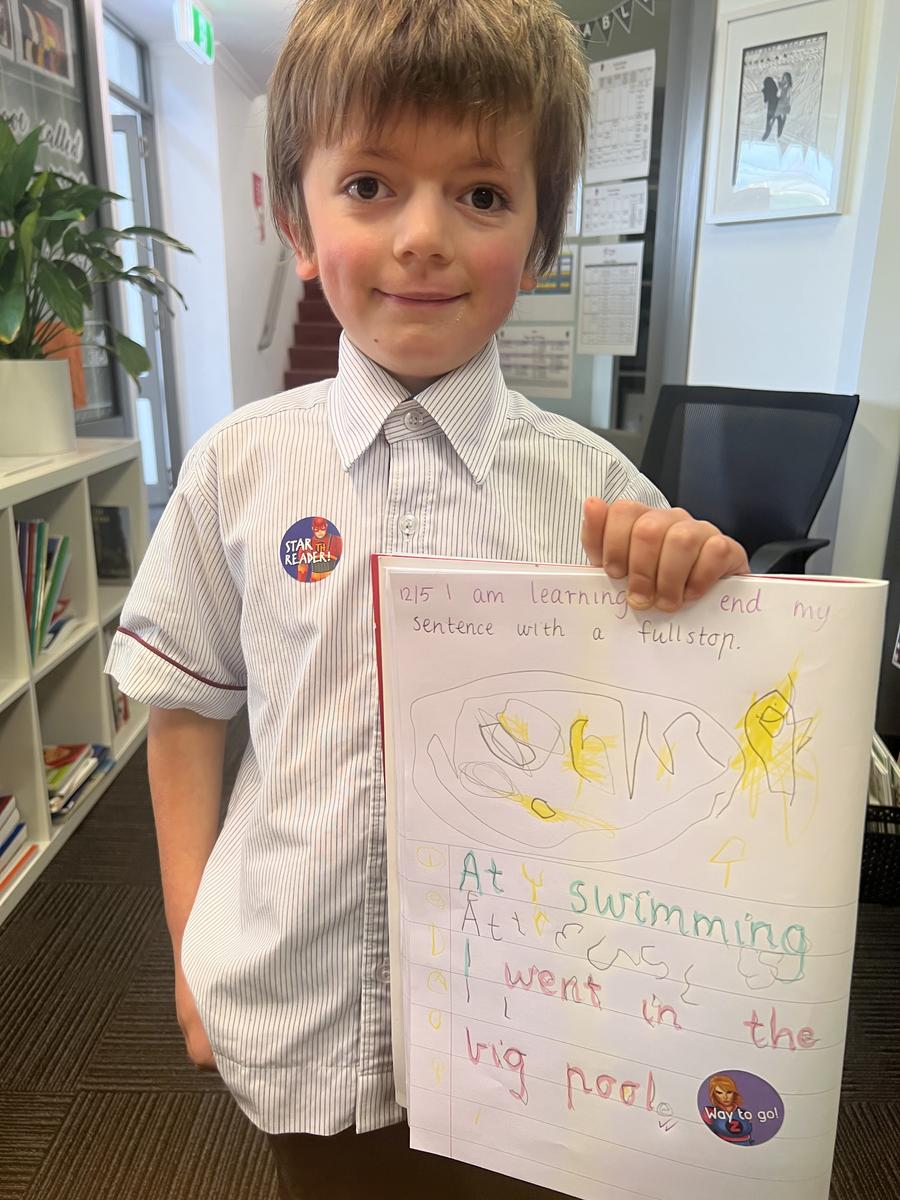 ABL
not called
STAR
READER!
12/5 I am learning end my
sentence with a fullstop.
At swimming
At
I went in the
I
big pool.
Way to go!
2